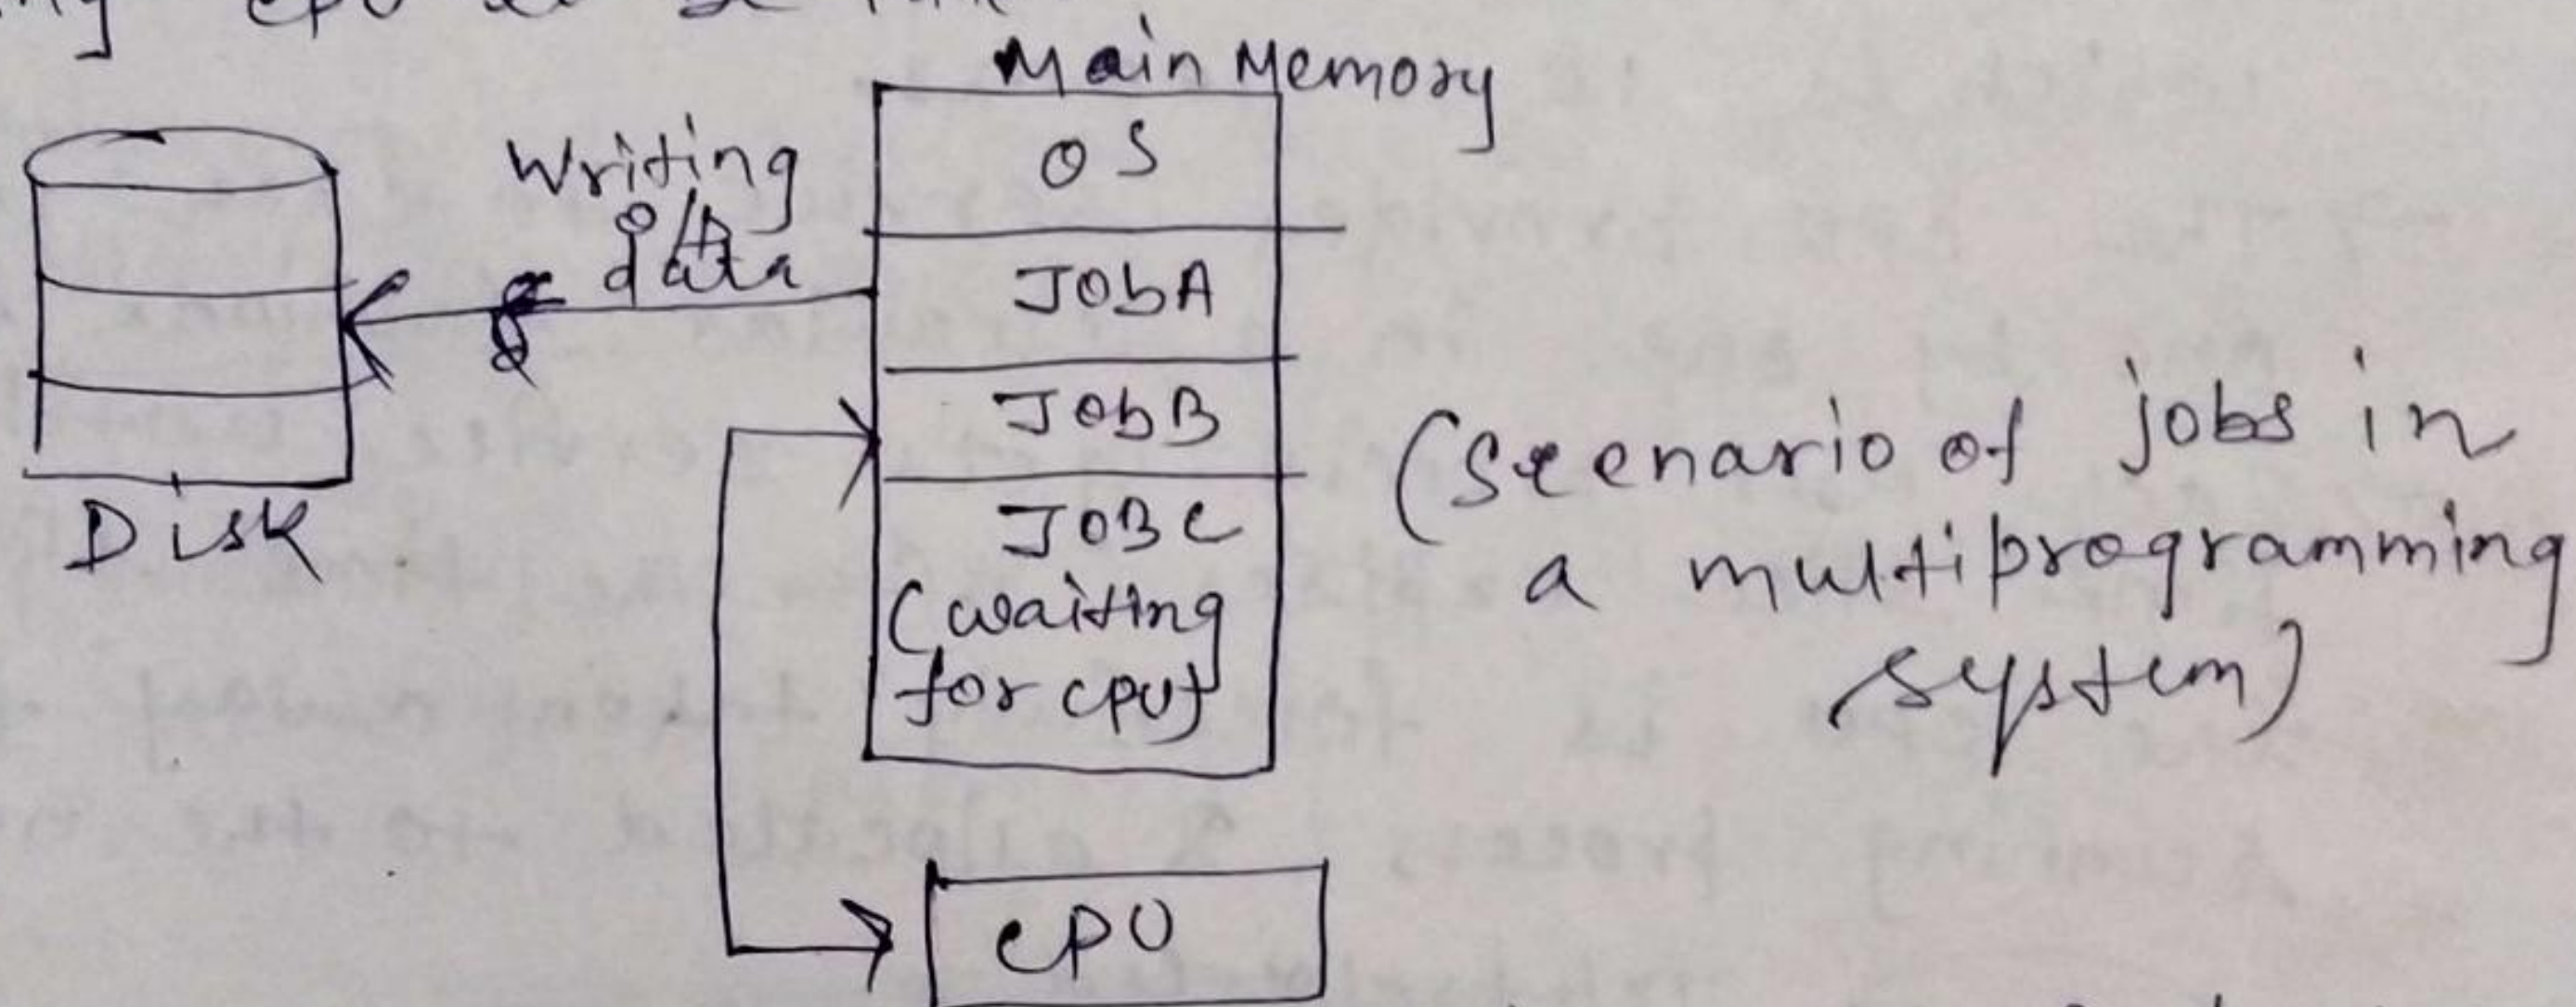 CPU
Main Memory
OS
Writing
o/p
data
JobA
JobB
JOBC
(waiting
for CPU)
Disk
(Scenario of jobs in
a multiprogramming
system)
CPU